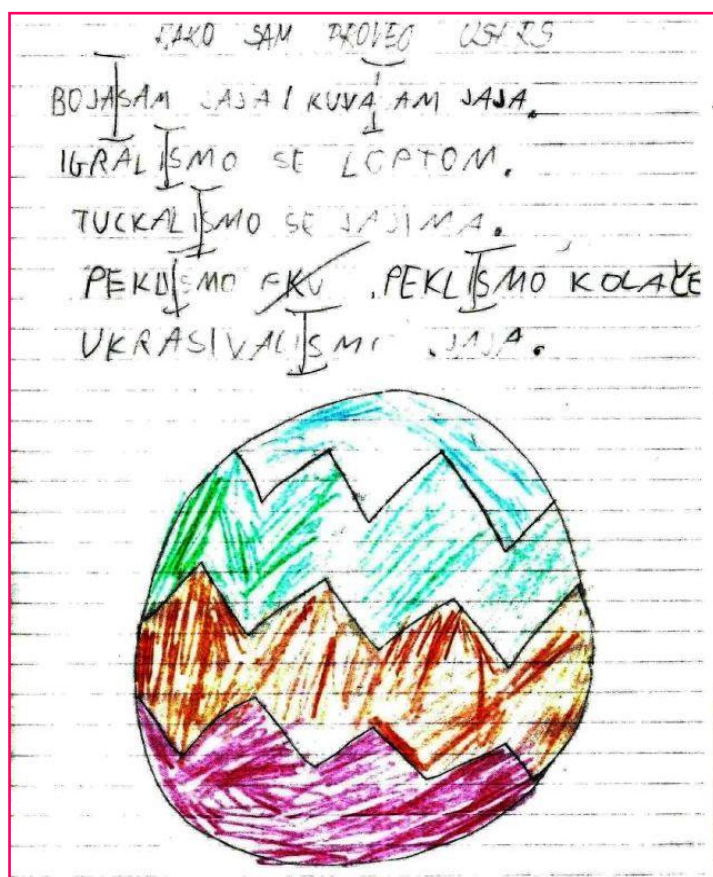 KAKO SAM PROVEO USKRS
BOJASAM JAJA I KUVA AM JAJA.
IGRALISMO SE LOPTOM.
TUCKALISMO SE JAJIMA.
PEKLISMO PEKLISMO KOLAČE
UKRASIVALISMO JAJA.